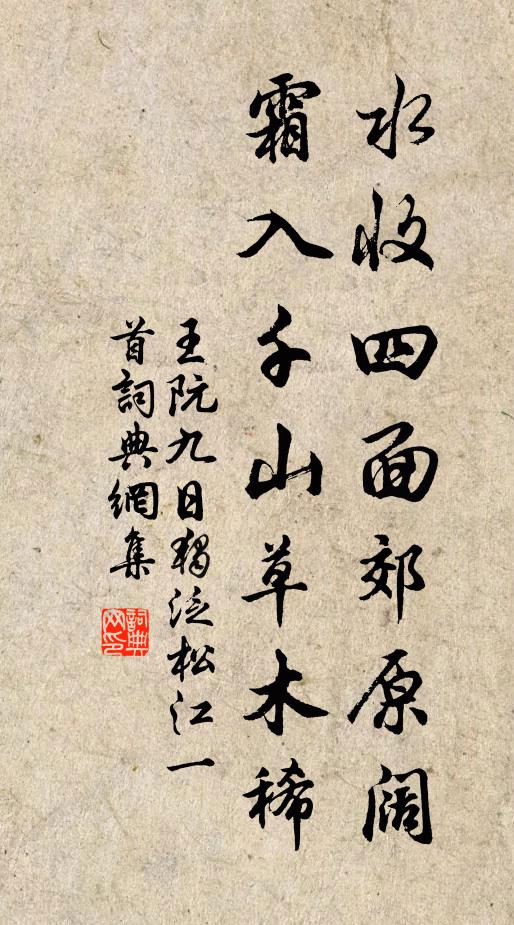 水收四面郊原阔
霜入千山草木稀
王阮九日独泛松江一
首詞典網集
詞典
网印